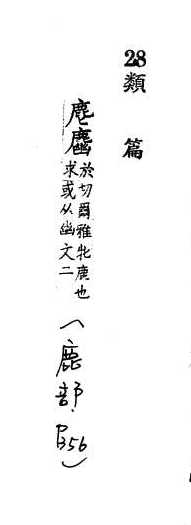 28類篇
麀
於切爾雅牝鹿也
求或从幽文二
(鹿部 )